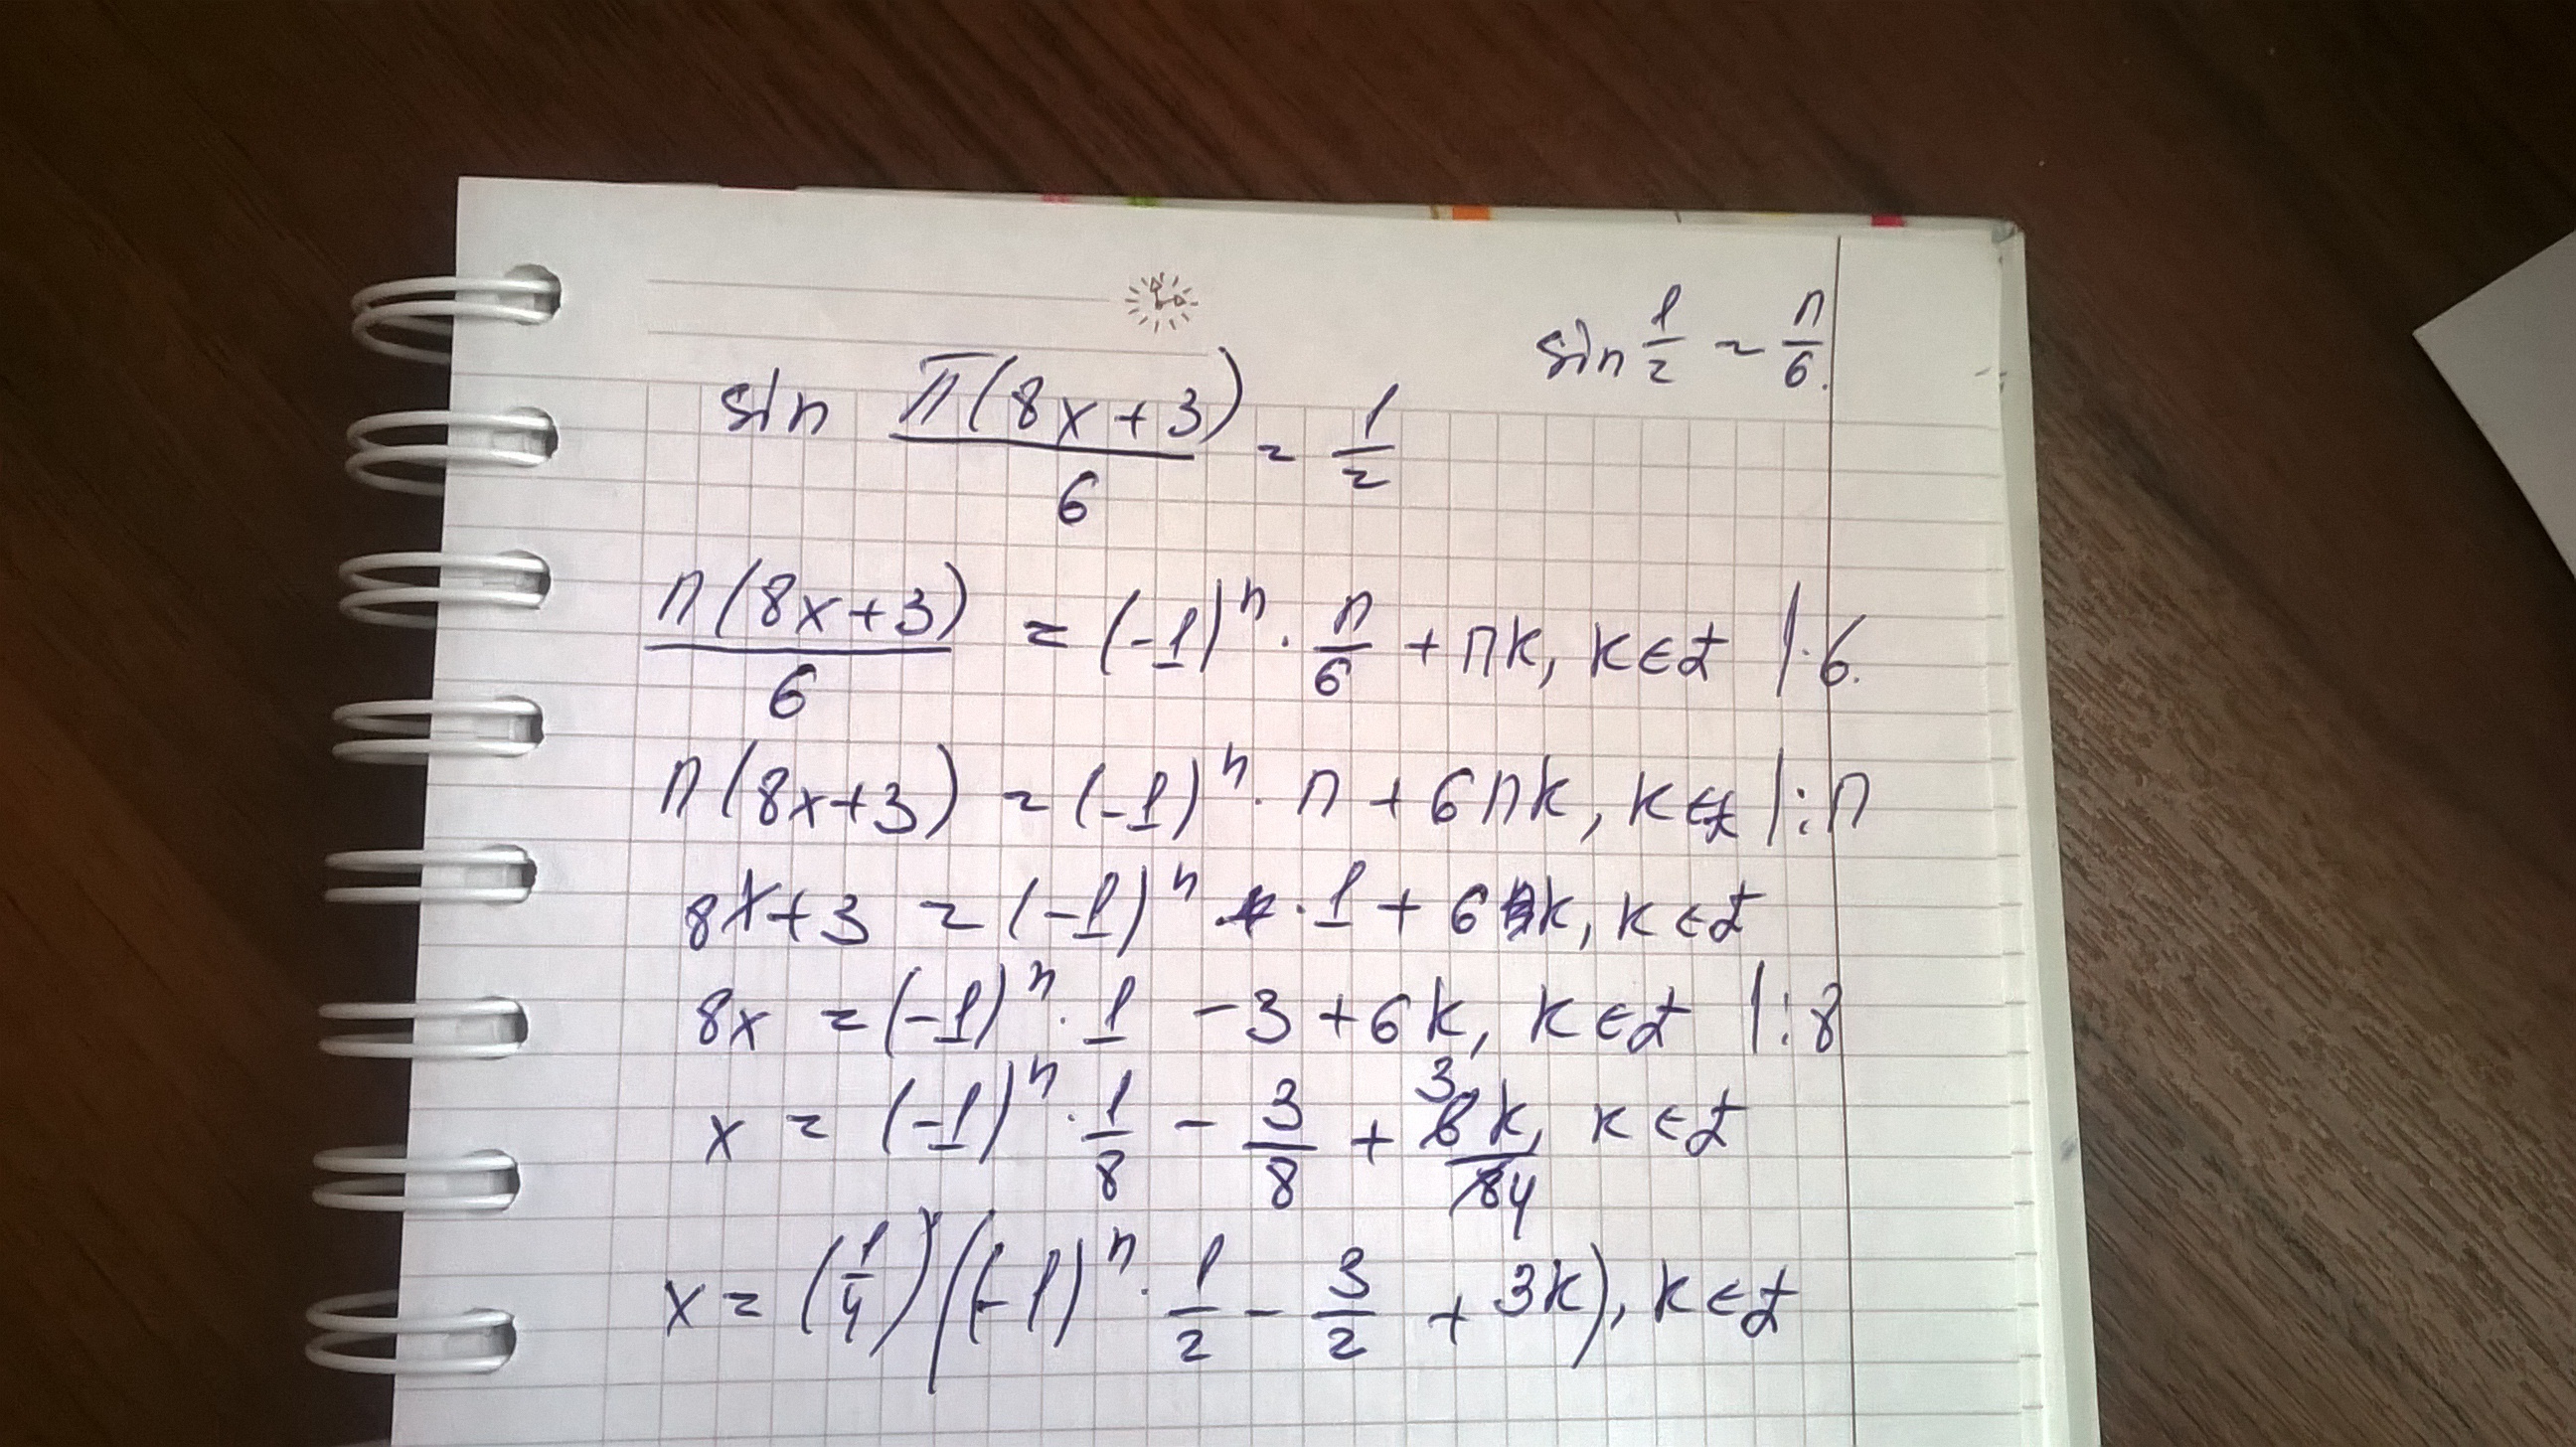 sin 1/2 = п/6.
sin π(8x+3)/6 = 1/2
п(8x+3)/6 = (-1)ⁿ · п/6 + пk, k∈Z |·6.
п(8x+3) = (-1)ⁿ · п + 6пk, k∈Z |:п
8x+3 = (-1)ⁿ · 1 + 6k, k∈Z
8x = (-1)ⁿ · 1 - 3 + 6k, k∈Z |:8
x = (-1)ⁿ · 1/8 - 3/8 + 3 6k/8 4, k∈Z
x = (1/4)((-1)ⁿ · 1/2 - 3/2 + 3k), k∈Z